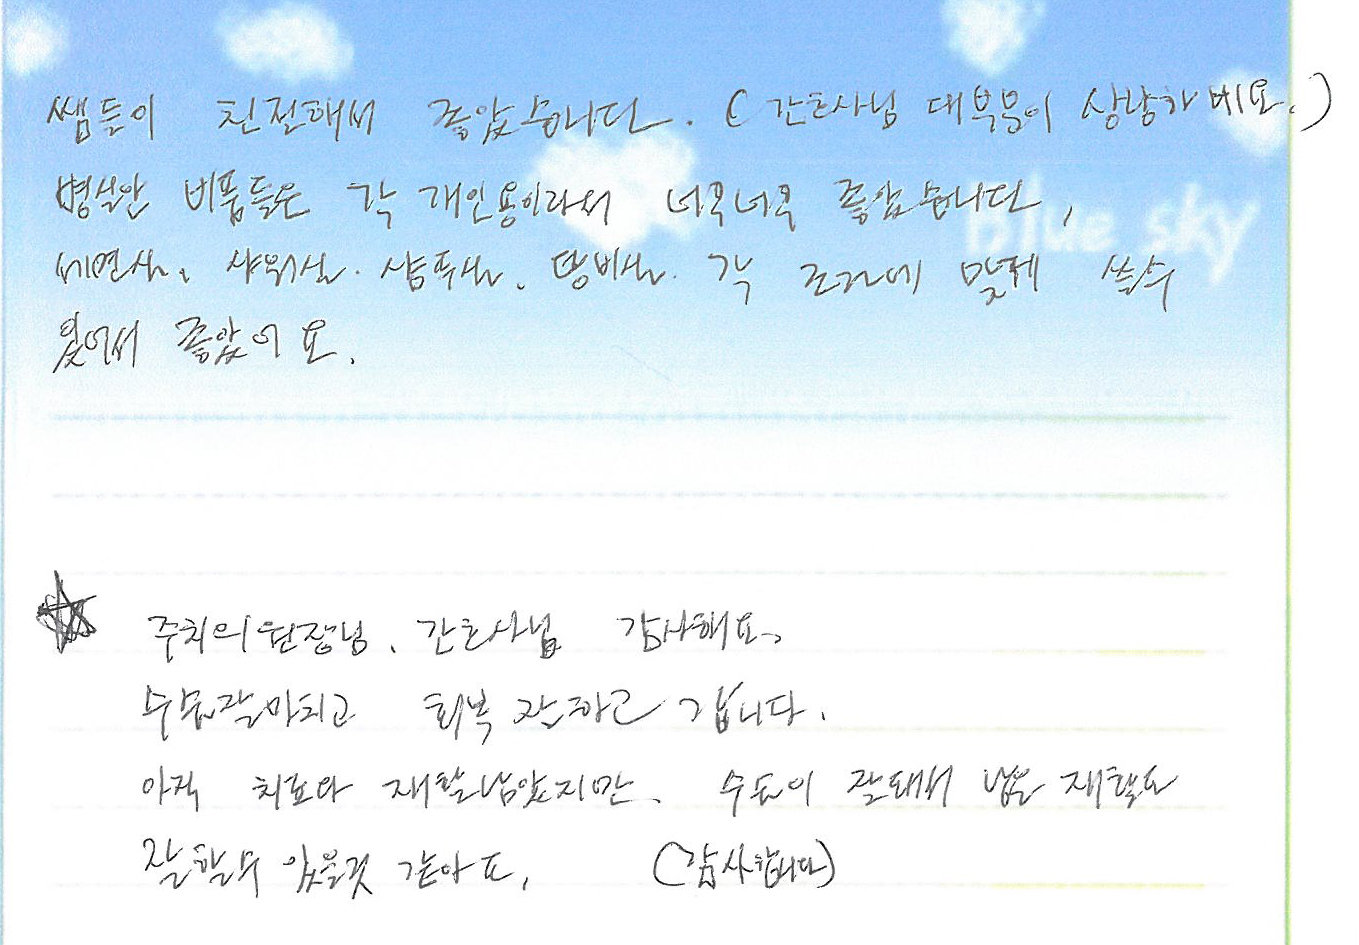 쌤들이 친절해서 좋았습니다. (간호사님 대부분이 상냥하세요.)
병실안 비품들은 각 개인용이라서 너무너무 좋았습니다,
Blue sky
세면실, 샤워실. 샴푸실. 탕비실. 각 조건에 맞게 쓸수
있어서 좋았어요.
주치의원장님, 간호사님 감사해요.
수술잘마치고 회복 잘하고 갑니다.
아직 치료와 재활남았지만, 수술이 잘돼서 남은 재활도
잘할수 있을것 같아요, (감사합니다)